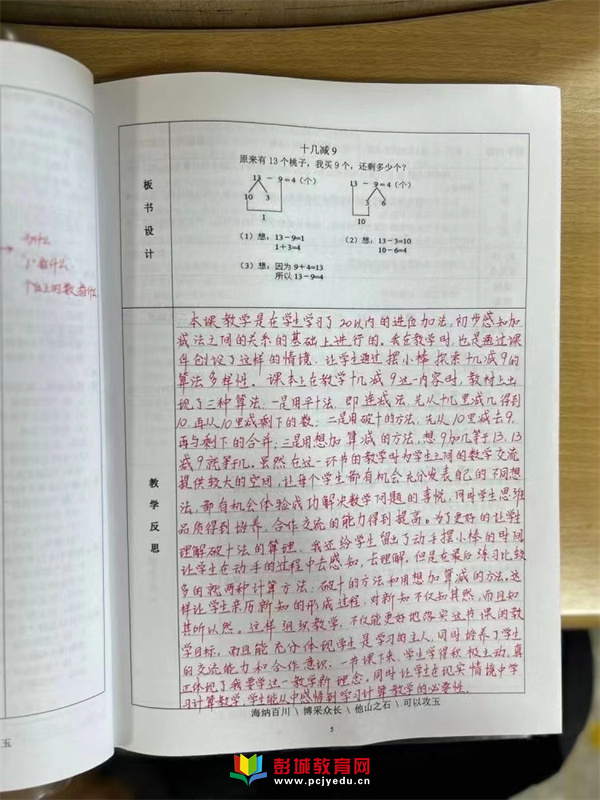 十几减9
原来有13个桃子，我买9个，还剩多少个？
板书设计
13 － 9＝4（个）
10 3
1
13 － 9＝4（个）
3 6
10
（1）想：13－9=1
1＋3=4
（2）想：13－3=10
10－6=4
（3）想：因为 9＋4=13
所以 13－9=4
教学反思
本课教学是在学生学习了20以内的进位加法，初步感知加
减法之间的关系的基础上进行的。我在教学时，也是通过课
件创设了这样的情境，让学生通过摆小棒，探索十几减9的
算法多样性。课本上在教学十几减9这一内容时，教材上出
现了三种算法，一是用平十法，即连减法，先从十几里减几得到
10，再从10里减剩下的数；二是用破十的方法，先从10里减去9，
再与剩下的合并；三是用想加算减的方法，想9加几等于13，13
减9就等于几。虽然在这一环节的教学时为学生之间的数学交流
提供较大的空间，让每个学生都有机会充分发表自己的不同想
法，都有机会体验成功解决数学问题的喜悦，同时学生思维
品质得到培养，合作交流的能力得到提高。为了更好的让学生
理解破十法的算理，我还给学生留了动手摆小棒的时间
让学生在动手的过程中去感知，去理解，但是在最后练习比较
多的就两种计算方法，破十的方法和用想加算减的方法，这
样让学生亲历新知的形成过程，对新知不仅知其然，而且知
其所以然。这样组织教学，不仅能更好地落实这节课的教
学目标，而且能充分体现学生是学习的主人，同时培养了学生
的交流能力和合作意识。一节课下来，学生学得积极主动，真
正体现了我要学这一教学新理念。同时让学生在现实情境中学
习计算教学，学生能从中感悟到学习计算教学的必要性。
海纳百川 \ 博采众长 \ 他山之石 \ 可以攻玉
5
玉
彭城教育网
www.pcjyedu.cn